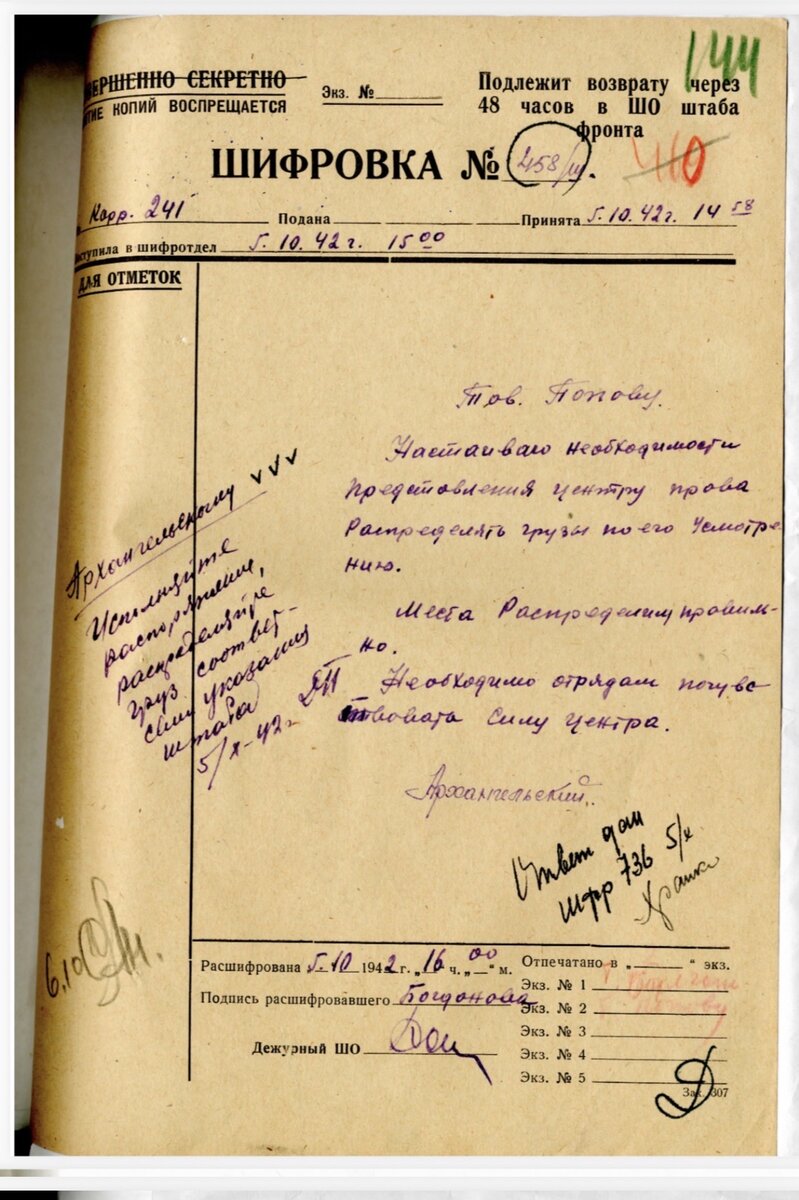 ВЕРШЕННО СЕКРЕТНО
ТИЕ КОПИЙ ВОСПРЕЩАЕТСЯ
Экз. №
Подлежит возврату через
48 часов в ШО штаба
фронта
144
ШИФРОВКА № 458/ш.
Корр. 241 Подана Принята 5.10.42г. 14 58
оступила в шифротдел 5.10.42г. 15 00
ДЛЯ ОТМЕТОК
Тов. Попову.
Настаиваю необходимости
Представления центру права
Распределять грузы по его Усмотре
нию.
Места Распределим правим-
но.
Необходимо отрядам почувс
ствовать Силу центра.
Архангельский.
Архангельскому
Исполняйте
распоряжение,
распределяйте
груз соответ-
указания
штаба
5/X-42г.
Ответ дан
шфр 736 5/х
6.10
Расшифрована 5.10 1942г. „16 ч. „00“ м.
Подпись расшифровавшего Богданова
Дежурный ШО
Отпечатано в „ “ экз.
Экз. № 1
Экз. № 2 Попову
Экз. № 3
Экз. № 4
Экз. № 5
Зак. 307